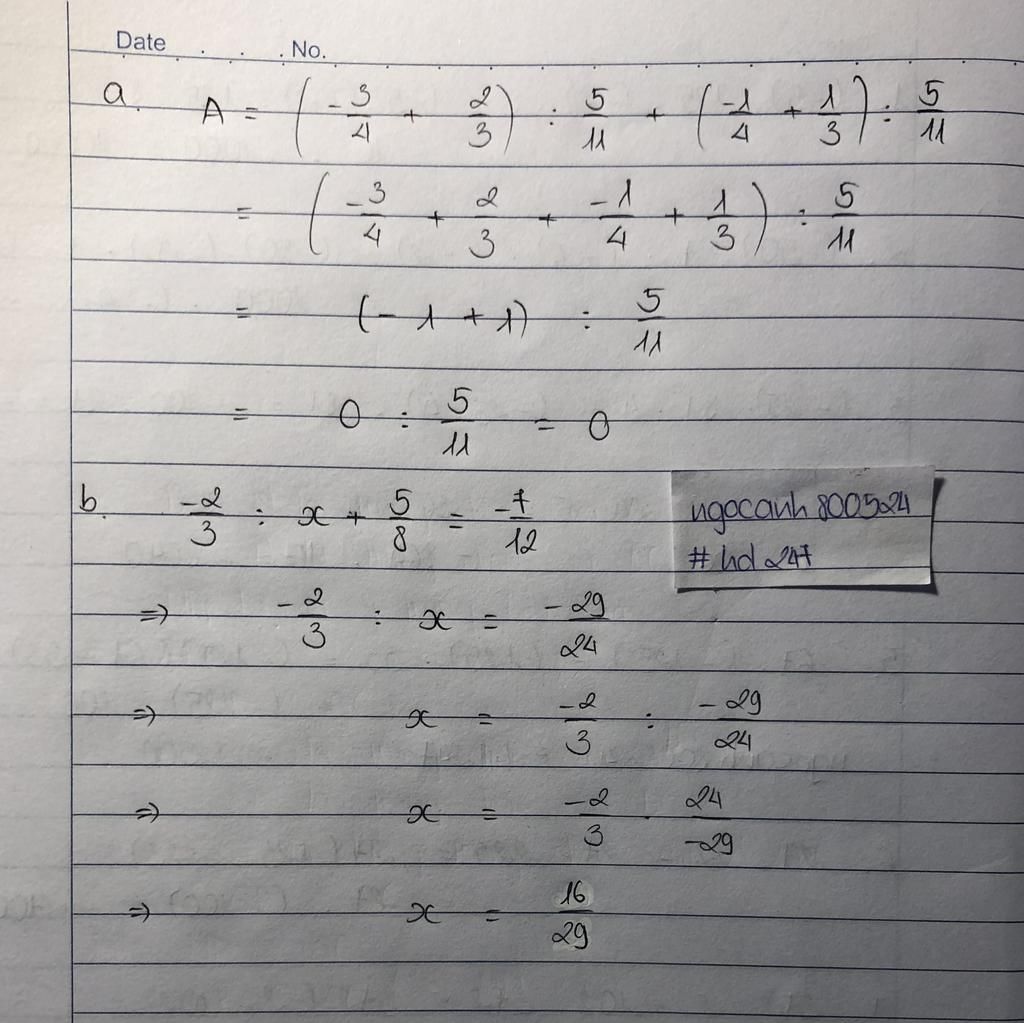 Date . . . No.
a. A = (-3/4 + 2/3) : 5/11 + (-1/4 + 1/3) : 5/11
= (-3/4 + 2/3 + -1/4 + 1/3) : 5/11
= (-1 + 1) : 5/11
= 0 : 5/11 = 0
b. -2/3 : x + 5/8 = -7/12
ngocanh800524
# hd247
=> -2/3 : x = -29/24
=> x = -2/3 : -29/24
=> x = -2/3 . 24/-29
=> x = 16/29